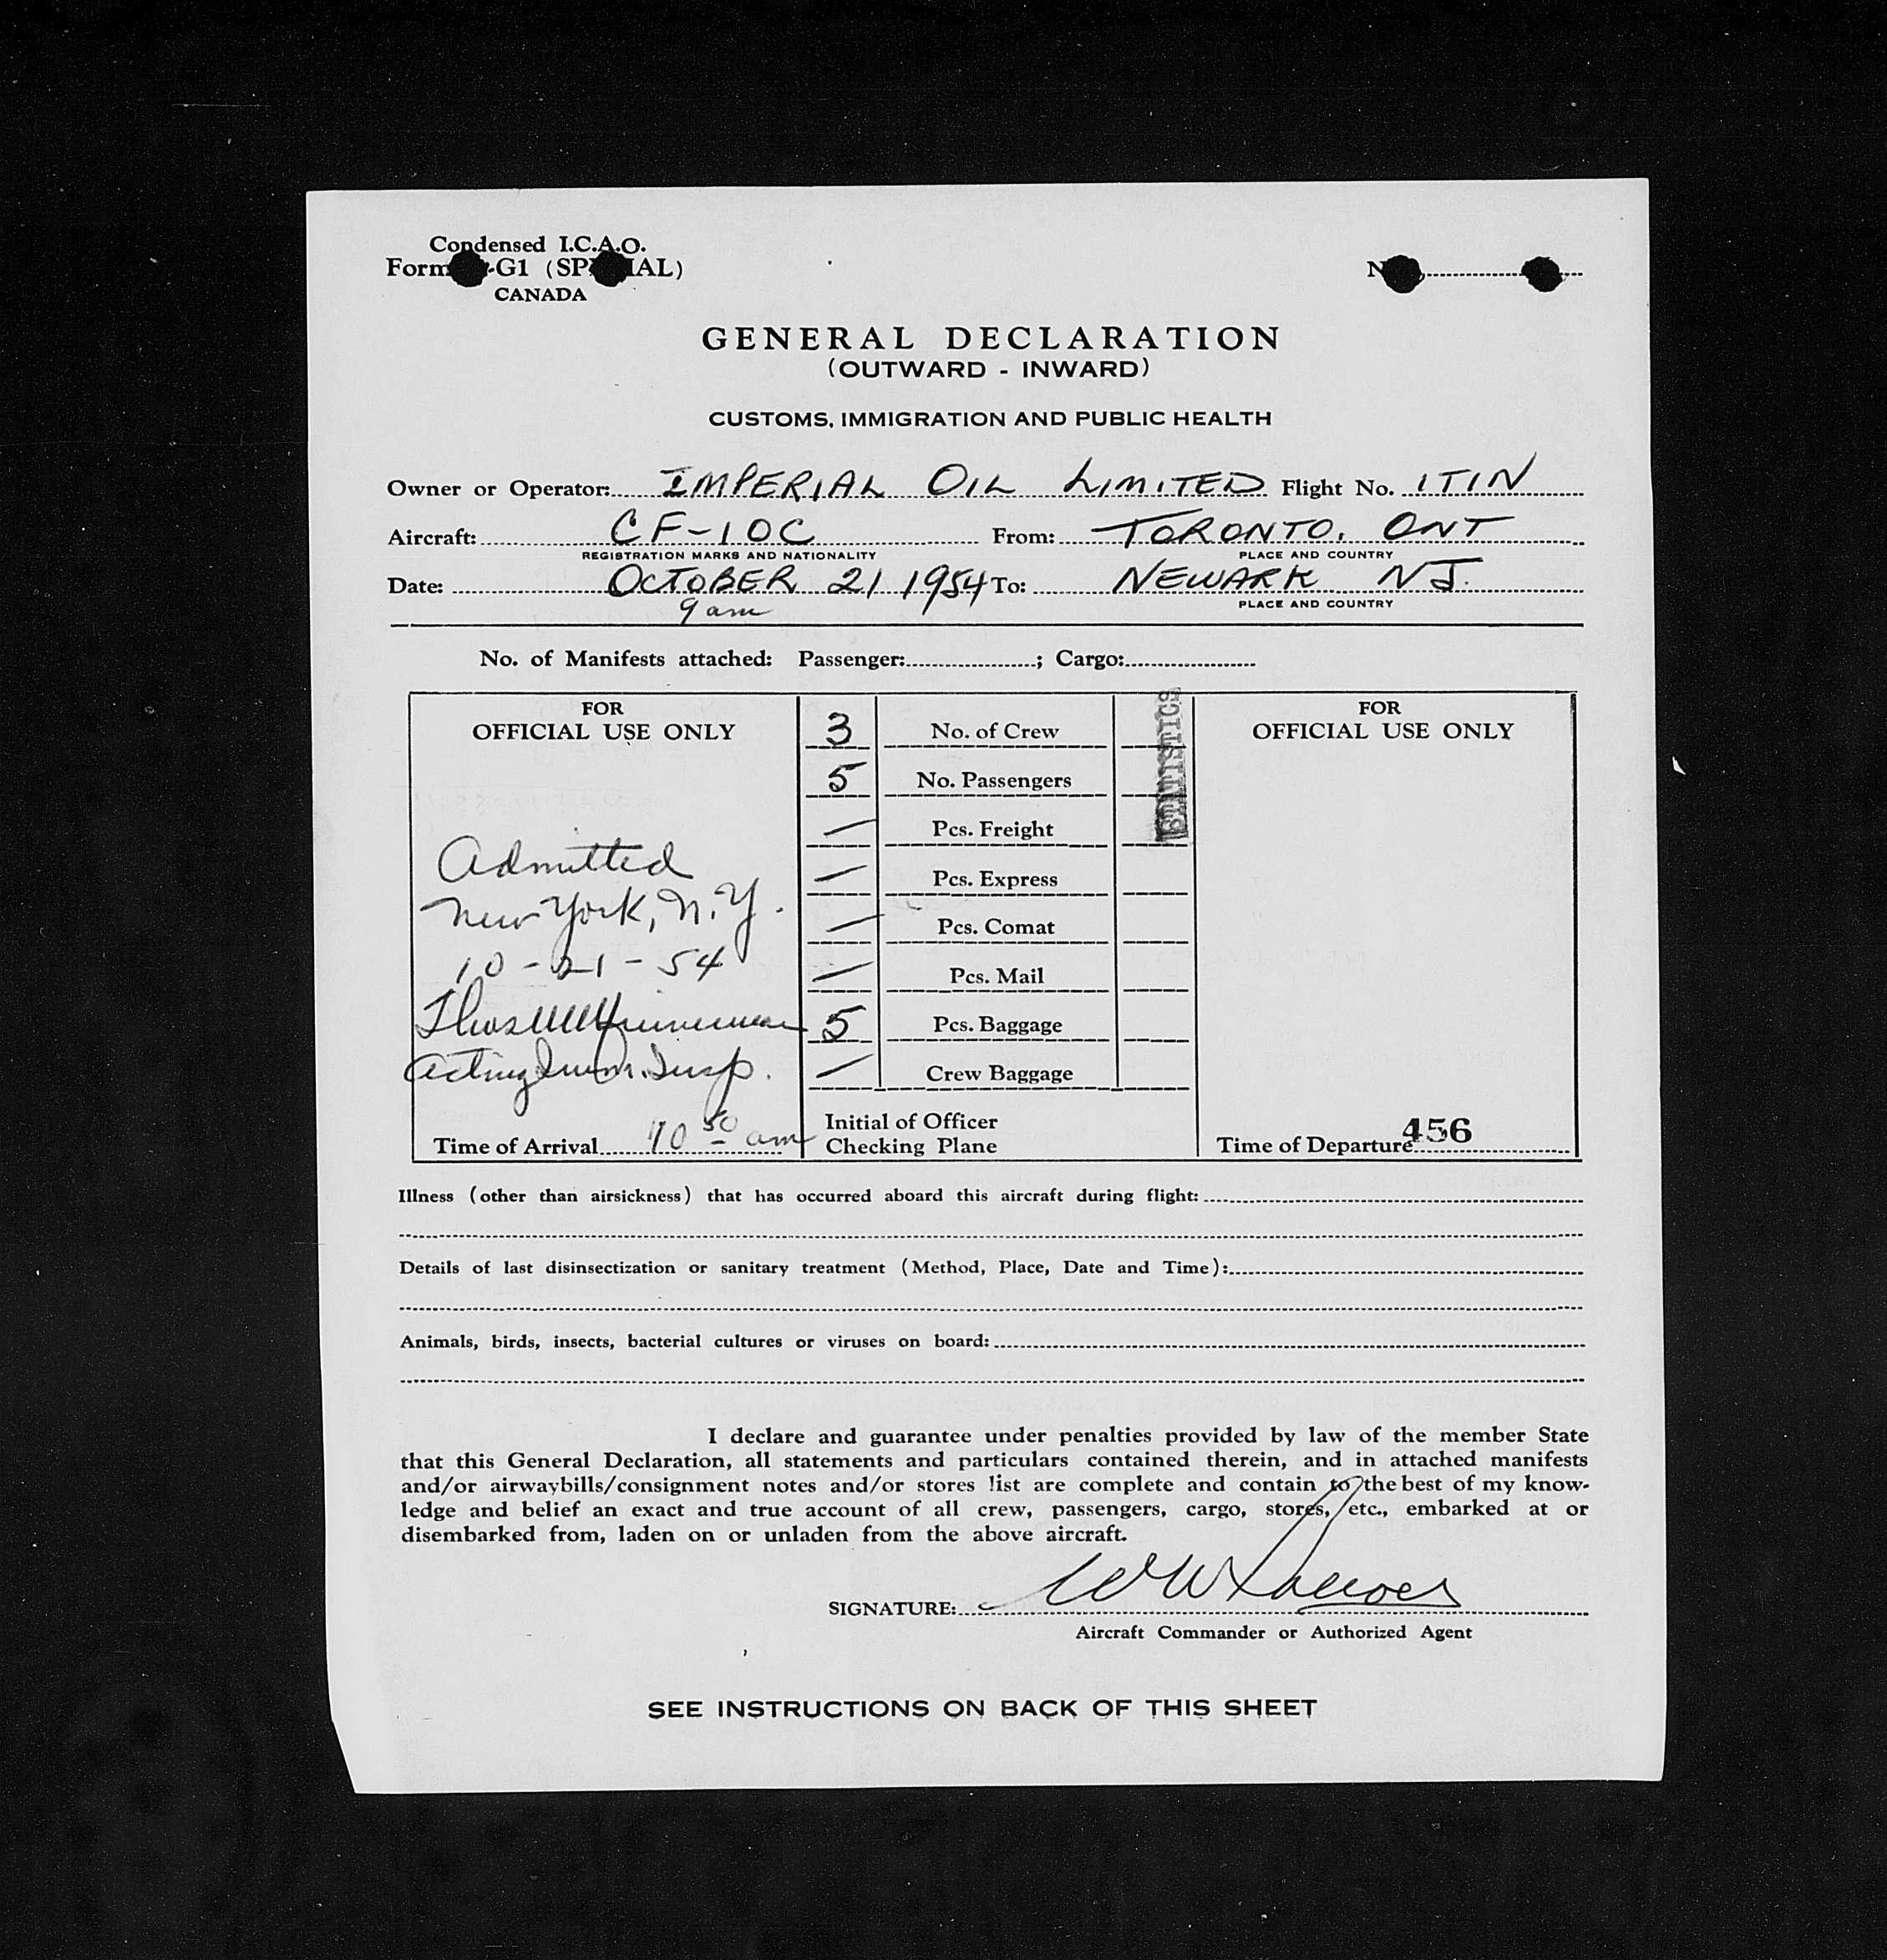 Condensed I.C.A.O.
Form -G1 (SP IAL)
CANADA
GENERAL DECLARATION
(OUTWARD - INWARD)
CUSTOMS, IMMIGRATION AND PUBLIC HEALTH
Owner or Operator: IMPERIAL OIL LIMITED Flight No. ITIN
Aircraft: CF-IOC From: TORONTO, ONT
REGISTRATION MARKS AND NATIONALITY PLACE AND COUNTRY
Date: OCTOBER 21 1954 To: NEWARK NJ.
9 am PLACE AND COUNTRY
No. of Manifests attached: Passenger: ; Cargo:
FOR
OFFICIAL USE ONLY
Admitted
New York, N.Y.
10-21-54
Acting Imm. Insp.
Time of Arrival 10 50 am
3 No. of Crew
5 No. Passengers
— Pcs. Freight
— Pcs. Express
— Pcs. Comat
— Pcs. Mail
5 Pcs. Baggage
— Crew Baggage
Initial of Officer
Checking Plane
STATISTICS
FOR
OFFICIAL USE ONLY
Time of Departure 456
Illness (other than airsickness) that has occurred aboard this aircraft during flight:
Details of last disinsectization or sanitary treatment (Method, Place, Date and Time):
Animals, birds, insects, bacterial cultures or viruses on board:
I declare and guarantee under penalties provided by law of the member State
that this General Declaration, all statements and particulars contained therein, and in attached manifests
and/or airwaybills/consignment notes and/or stores list are complete and contain to the best of my know-
ledge and belief an exact and true account of all crew, passengers, cargo, stores, etc., embarked at or
disembarked from, laden on or unladen from the above aircraft.
SIGNATURE:
Aircraft Commander or Authorized Agent
SEE INSTRUCTIONS ON BACK OF THIS SHEET